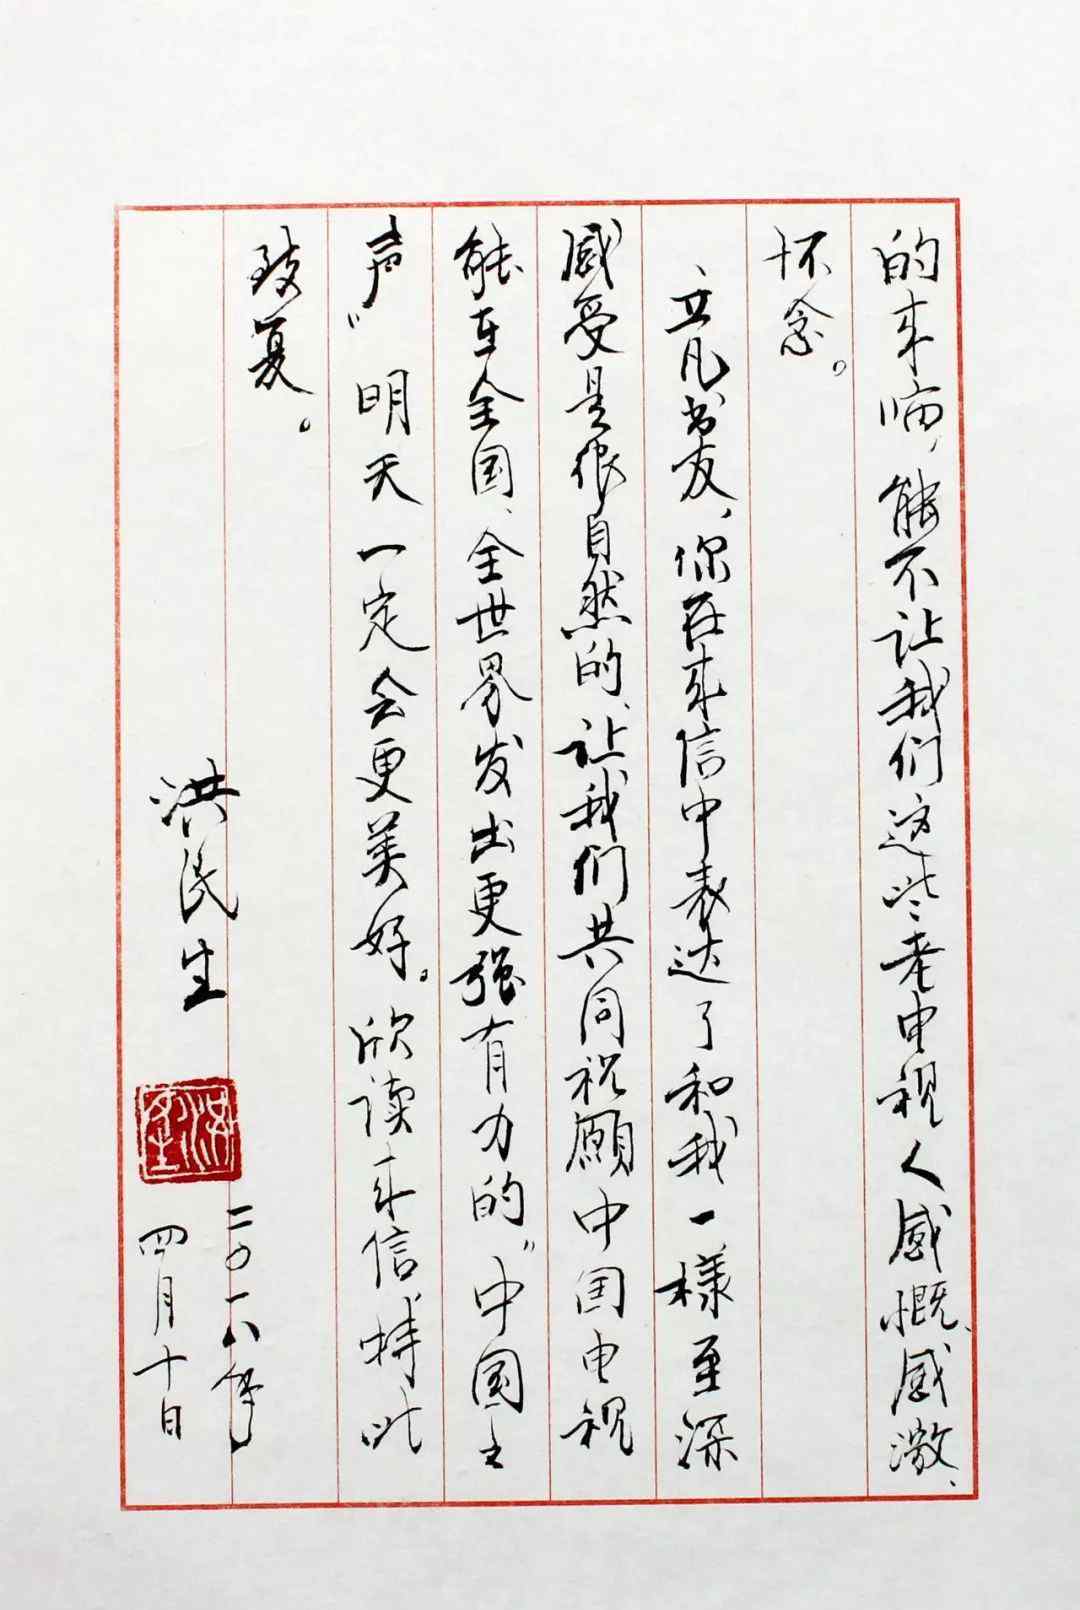 的来临，能不让我们这些老电视人感慨、感激、
怀念。
立凡书友，你在来信中表达了和我一樣至深
感受是很自然的、让我们共同祝願中国电视
能在全国、全世界发出更强有力的“中国之
声”明天一定会更美好。欣读来信特此
致复。
洪民生
二〇一八年
四月十日